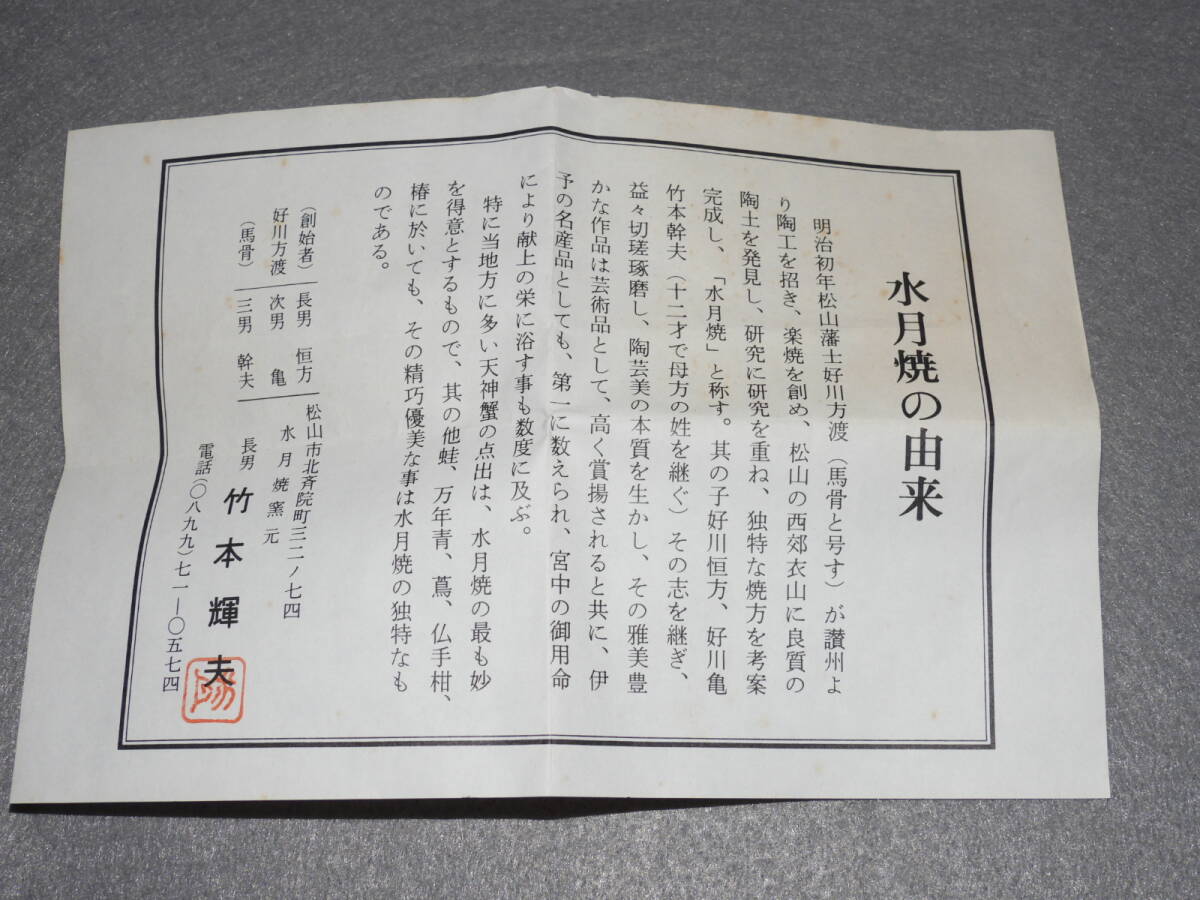 水月焼の由来
明治初年松山藩士好川方渡（馬骨と号す）が讃州よ
り陶工を招き、楽焼を創め、松山の西郊衣山に良質の
陶土を発見し、研究に研究を重ね、独特な焼方を考案
完成し、「水月焼」と称す。其の子好川恒方、好川亀
竹本幹夫（十二才で母方の姓を継ぐ）その志を継ぎ、
益々切瑳琢磨し、陶芸美の本質を生かし、その雅美豊
かな作品は芸術品として、高く賞揚されると共に、伊
予の名産品としても、第一に数えられ、宮中の御用命
により献上の栄に浴す事も数度に及ぶ。
特に当地方に多い天神蟹の点出は、水月焼の最も妙
を得意とするもので、其の他蛙、万年青、蔦、仏手柑、
椿に於いても、その精巧優美な事は水月焼の独特なも
のである。
（創始者）長男 恒方
好川方渡 次男 亀
（馬骨） 三男 幹夫
松山市北斉院町三二ノ七四
水月焼窯元
長男 竹本輝夫
電話（〇八九九）七一―〇五七四